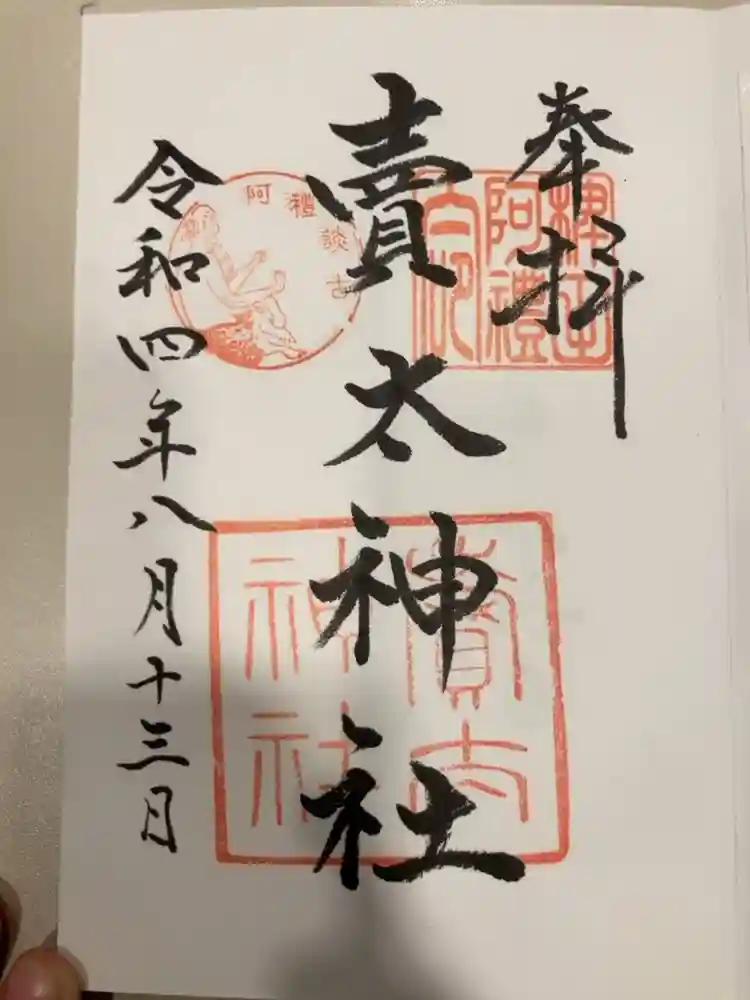 奉拝
賣太神社
令和四年八月十三日
稗田
阿禮
阿禮談古
賣太
神社